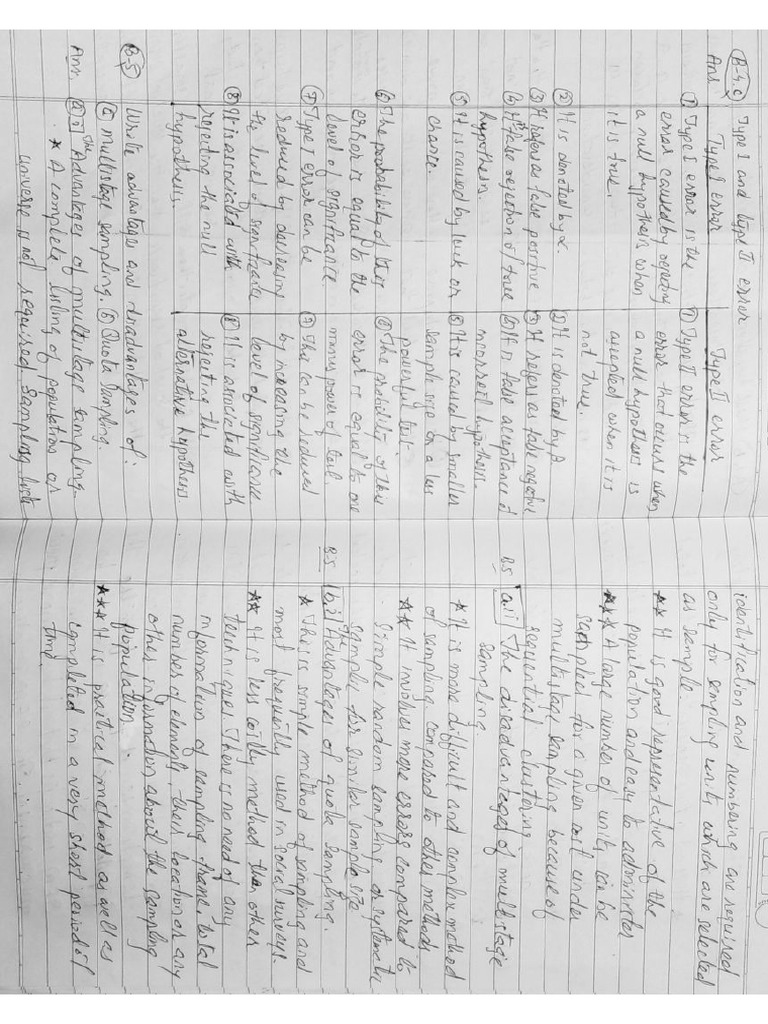 B-4 c Type I and type II error
Ans.
Type I error
① Type I error is the
error caused by rejecting
a null hypothesis when
it is true.
② It is denoted by α.
③ It refers as false positive
④ It is false rejection of true
hypothesis.
⑤ It is caused by luck or
chance.
⑥ The probability of this
error is equal to the
level of significance
⑦ Type I error can be
reduced by decreasing
the level of significance
⑧ It is associated with
rejecting the null
hypothesis.
Type II error
① Type II error is the
error that occurs when
a null hypothesis is
accepted when it is
not true.
② It is denoted by β
③ It refers as false negative
④ It is false acceptance of
incorrect hypothesis
⑤ It is caused by smaller
sample size or a less
powerful test.
⑥ The probility of this
error is equal to one
minus power of test
⑦ This can be reduced
by increasing the
level of significance
⑧ It is associated with
rejecting the
alternative hypothesis.
B-5 Write advantage and disadvantages of:
ⓐ multistage sampling. ⓑ Quota Sampling.
Ans. ⓐ The Advantages of multistage sampling.
★ A complete listing of population or
universe is not required sampling lists
identification and numbering are required
only for sampling units which are selected
as sample.
★★ It is good representative of the
population and easy to administer
★★★ A large number of units can be
sampled for a given cost under
multistage sampling because of
sequential clustering
B.5 a.ii The disadvantages of multistage
sampling
★ It is more difficult and complex method
of sampling compared to other methods
★★ It involves more errors compared to
simple random sampling or systematic
sample for similar sample size
B-5 b.i The Advantages of quota sampling.
★ This is simple method of sampling and
most frequently used in social surveys.
★★ It is less costly method than other
techniques. There is no need of any
information of sampling frame, total
number of elements their location or any
other information about the sampling
population.
★★★ It is practical method as well as
completed in a very short period of
time.